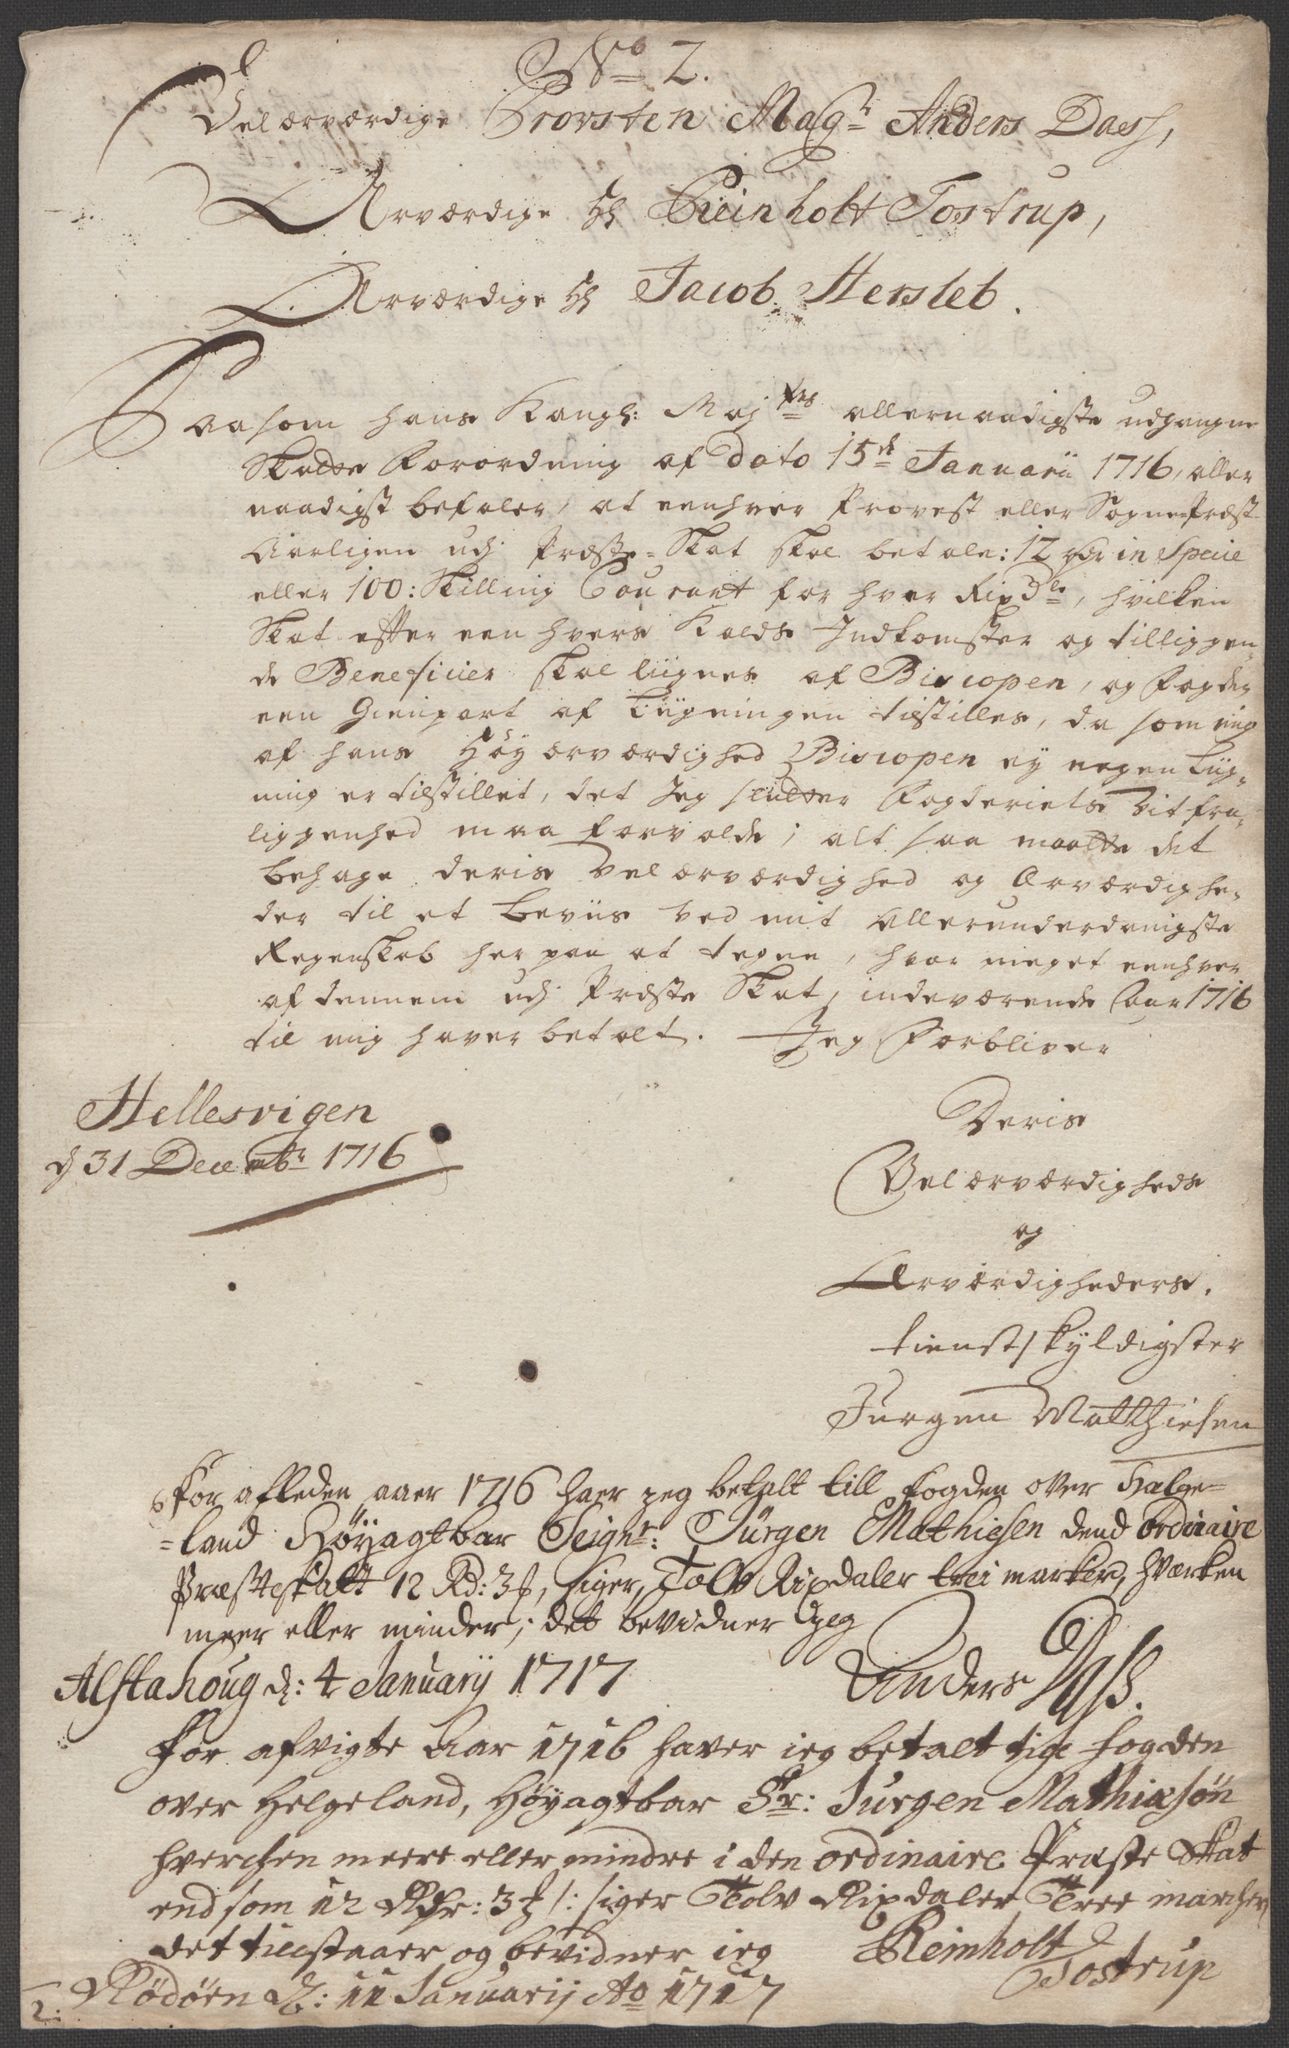 No 2.
Velærværdige Provsten Magr Anders Dass,
Ærværdige Hr Reinholt Tostrup,
Ærværdige Hr Jacob Hersleb.
Saasom hans Kongl: Majts allernaadigste udgangne
Skatte Forordning af Dato 15de Januarii 1716, aller
naadigst befaler, at eenhver Provest eller Sogne-Præst
Aarligen udj Præste-Skat skal betale: 12 rdr in Specie
eller 100: Skilling Courant for hver Rixdlr, hvilken
Skat efter een hvers Kalds Indkomster og tilliggen-
de Beneficier skal liignes af Biscopen, og Fogden
een Gienpart af Liigningen tilstilles, da som mig
af hans Høyærværdighed Biscopen ey nogen Liig-
ning er tilstillet, det Jeg Fogderiets Vitfra-
liggenhed maa forvolde; alt saa maatte det
behage deris Velærværdighed og Ærværdighe-
der til et beviis ved mit allerunderdanigste
Regenskab her paa at tegne, hvor meget eenhver
af dennem udj Præste Skat, indeværende Aar 1716
til mig haver betalt. Jeg Forbliver
Hellesvigen
d 31 Decembr 1716
Deris
Velærværdigheds
og
Ærværdigheders.
tienstskyldigster
Jurgen Matthiesen
For afleden aaer 1716 haer jeg betalt till fogden over Halge-
=land Høyagtbar Seignr: Jürgen Mathiesen dend ordinaire
Præsteskatt 12 Rd: 3 ƒ, siger, Tolv Rixdaler trei marker, hværken
meer eller minder; det bevidner jeg
Alstahoug d: 4 Januarij 1717 Anders Dass.
For afvigte Aar 1716 haver ieg betalt till fogden
over Helgeland, Høyagtbar Sr: Jurgen Mathiæsøn
hverchen meere eller mindre i den ordinaire Præste Skat
end som 12 Rdr: 3 ƒ /: siger Tolv Rixdaler Tree marcher
det tilstaaer og bevidner ieg Reinholt
Tostrup
Rödöen d: 11 Januarij Ao 1717
2: